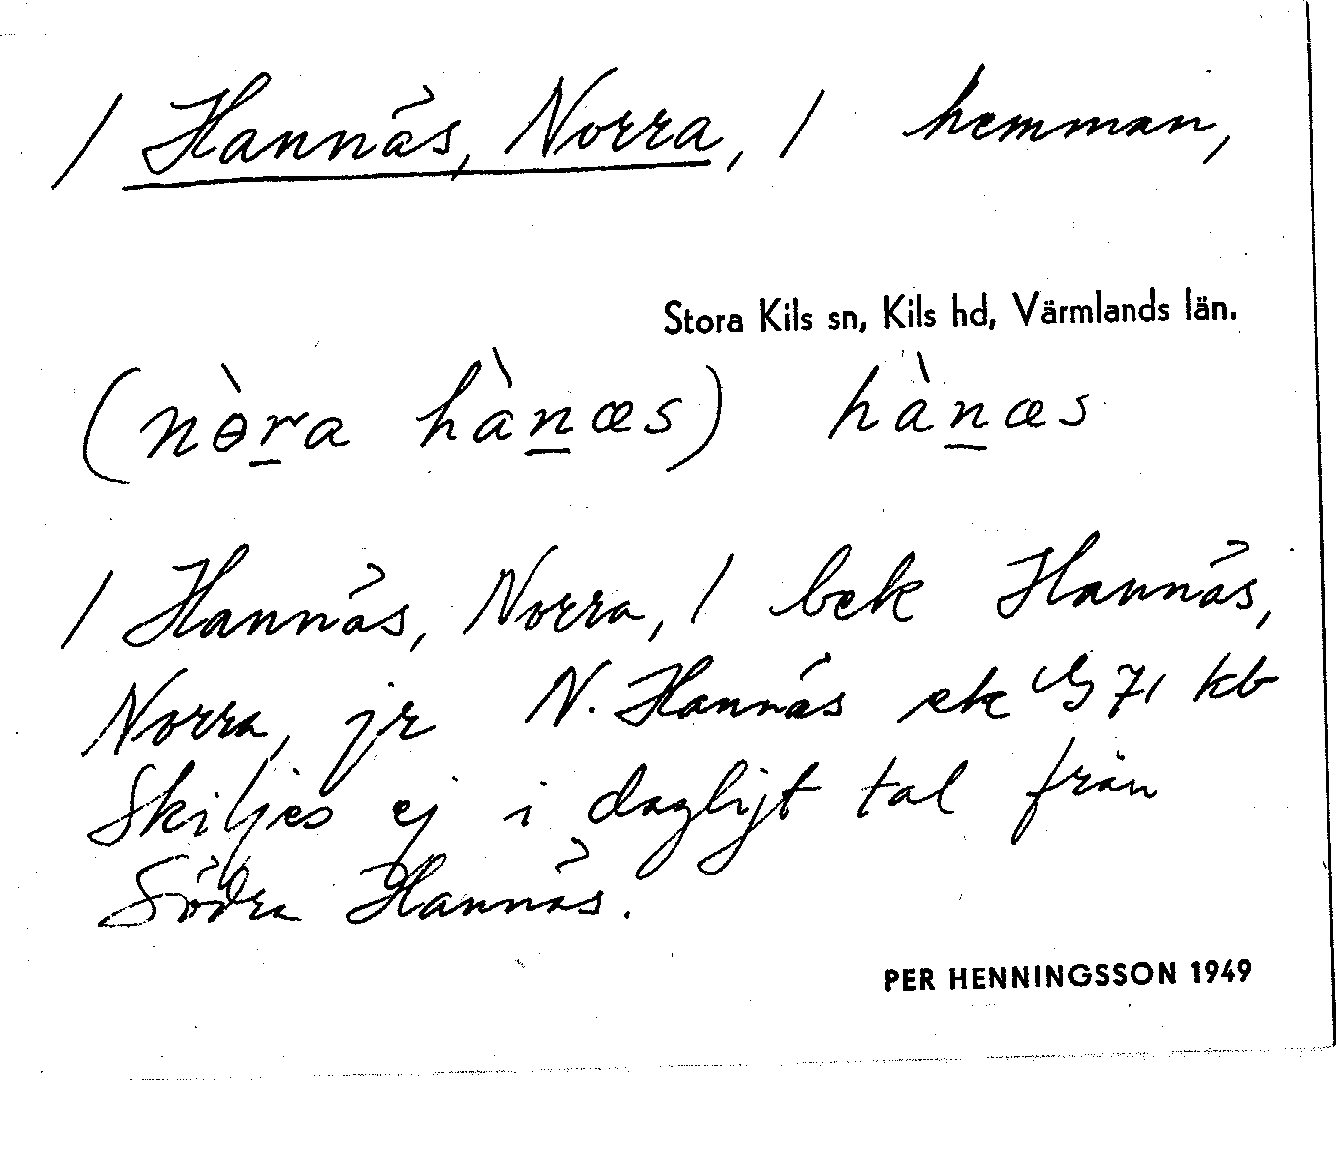 / Hannäs, Norra, / hemman,
Stora Kils sn, Kils hd, Värmlands län.
(nɵ̀r̲a hàn̲æs) hàn̲æs
/ Hannäs, Norra, / bek Hannäs,
Norra, jr N. Hannäs ek G 71 kb
Skiljes ej i dagligt tal från
Södra Hannäs.
PER HENNINGSSON 1949